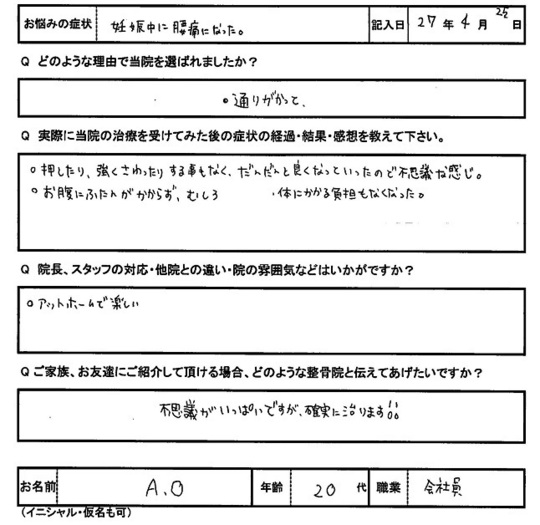 お悩みの症状 妊娠中に腰痛になった。 記入日 27年4月25日
Q どのような理由で当院を選ばれましたか？
○通りがかって、
Q 実際に当院の治療を受けてみた後の症状の経過・結果・感想を教えて下さい。
○押したり、強くさわったりする事もなく、だんだんと良くなっていったので不思議な感じ。
○お腹にふたんがかからず、むしろ 、体にかかる負担もなくなった。
Q 院長、スタッフの対応・他院との違い・院の雰囲気などはいかがですか？
○アットホームで楽しい
Q ご家族、お友達にご紹介して頂ける場合、どのような整骨院と伝えてあげたいですか？
不思議がいっぱいですが、確実に治ります!!
お名前 A.O 年齢 20代 職業 会社員
（イニシャル・仮名も可）